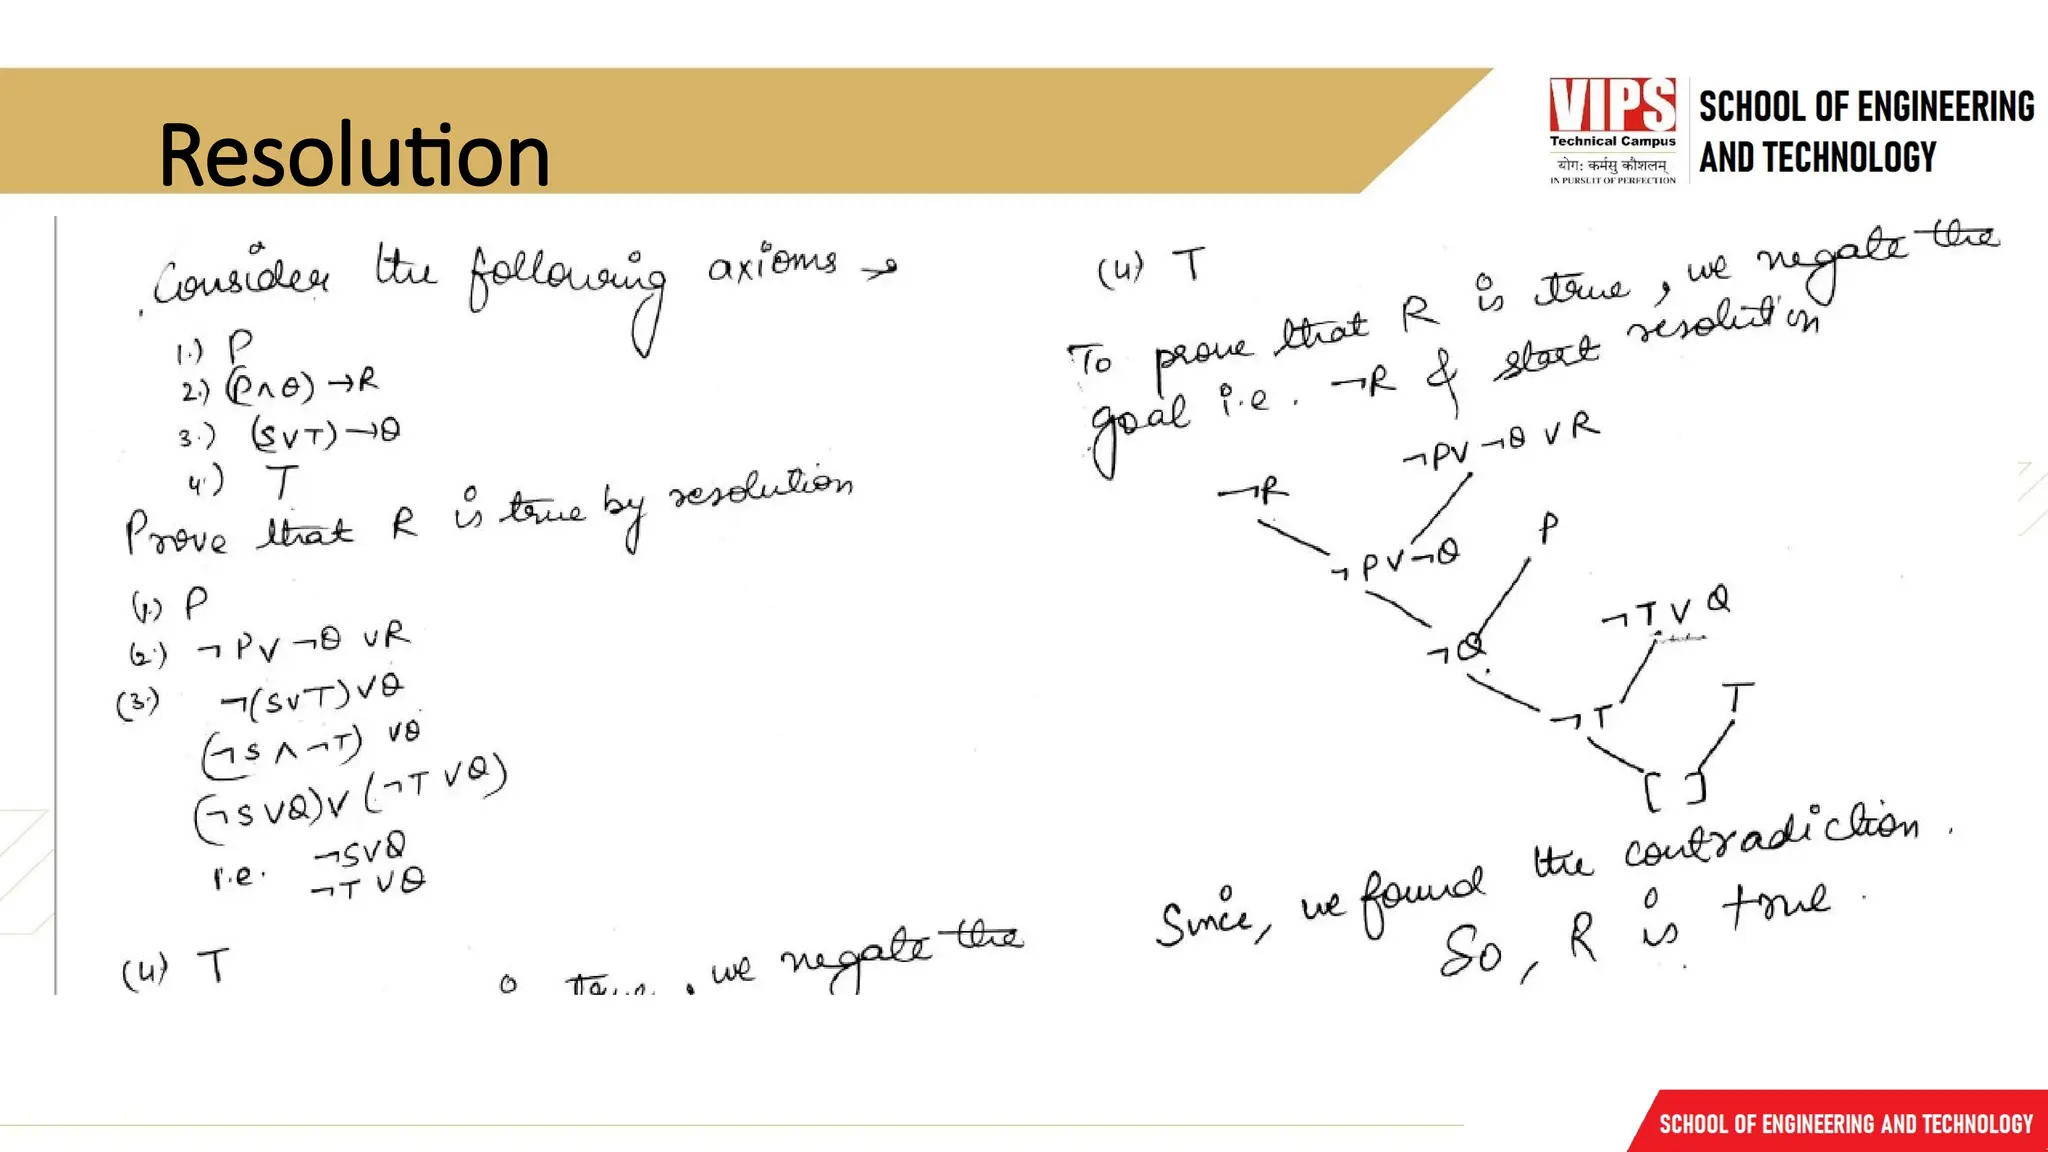 Resolution
VIPS
Technical Campus
योगः कर्मसु कौशलम्
IN PURSUIT OF PERFECTION
SCHOOL OF ENGINEERING
AND TECHNOLOGY
Consider the following axioms →
1.) P
2.) (P ∧ Q) → R
3.) (S ∨ T) → Q
4.) T
Prove that R is true by resolution
(1.) P
(2.) ¬P ∨ ¬Q ∨ R
(3.) ¬(S ∨ T) ∨ Q
(¬S ∧ ¬T) ∨ Q
(¬S ∨ Q) ∨ (¬T ∨ Q)
i.e. ¬S ∨ Q
¬T ∨ Q
(4) T
is true, we negate the
(4) T
To prove that R is true, we negate the
goal i.e. ¬R & start resolution
¬P ∨ ¬Q ∨ R
¬R
P
¬P ∨ ¬Q
¬T ∨ Q
¬Q
T
¬T
[ ]
Since, we found the contradiction.
So, R is true.
SCHOOL OF ENGINEERING AND TECHNOLOGY